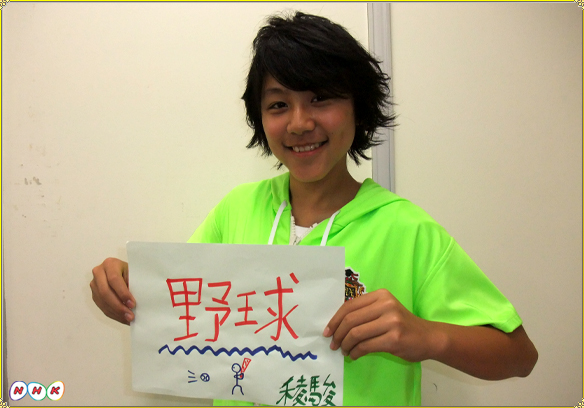 野球
稜駿
NHK